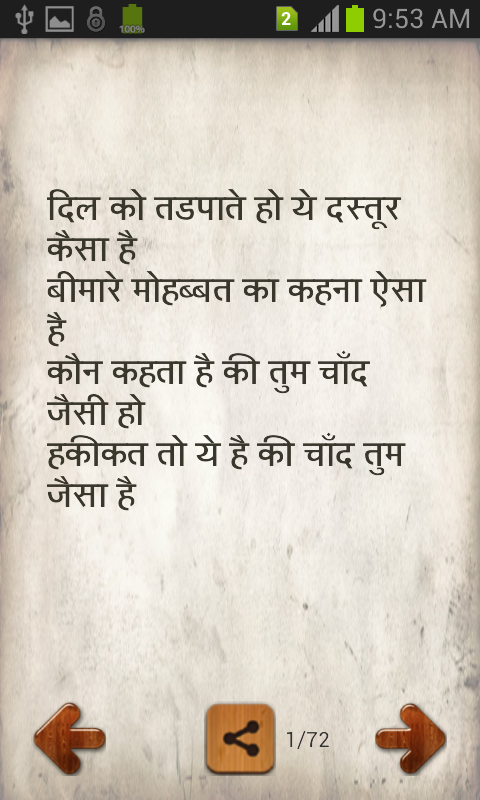 100%
2
9:53 AM
दिल को तडपाते हो ये दस्तूर
कैसा है
बीमारे मोहब्बत का कहना ऐसा
है
कौन कहता है की तुम चाँद
जैसी हो
हकीकत तो ये है की चाँद तुम
जैसा है
1/72